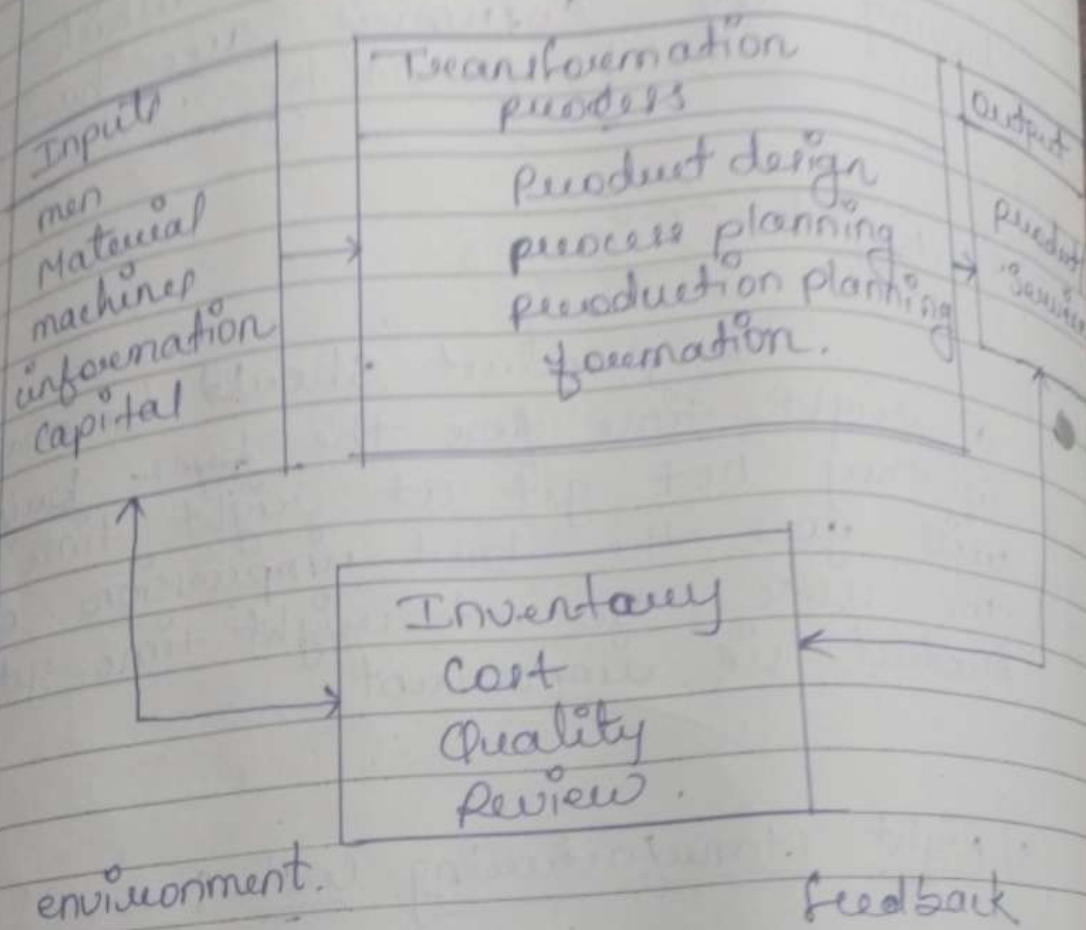 Inputs
men
Material
machines
information
capital
Transformation
process
Product design
process planning
production planning
formation.
Output
Product
Service
Inventory
Cost
Quality
Review.
environment.
feedback